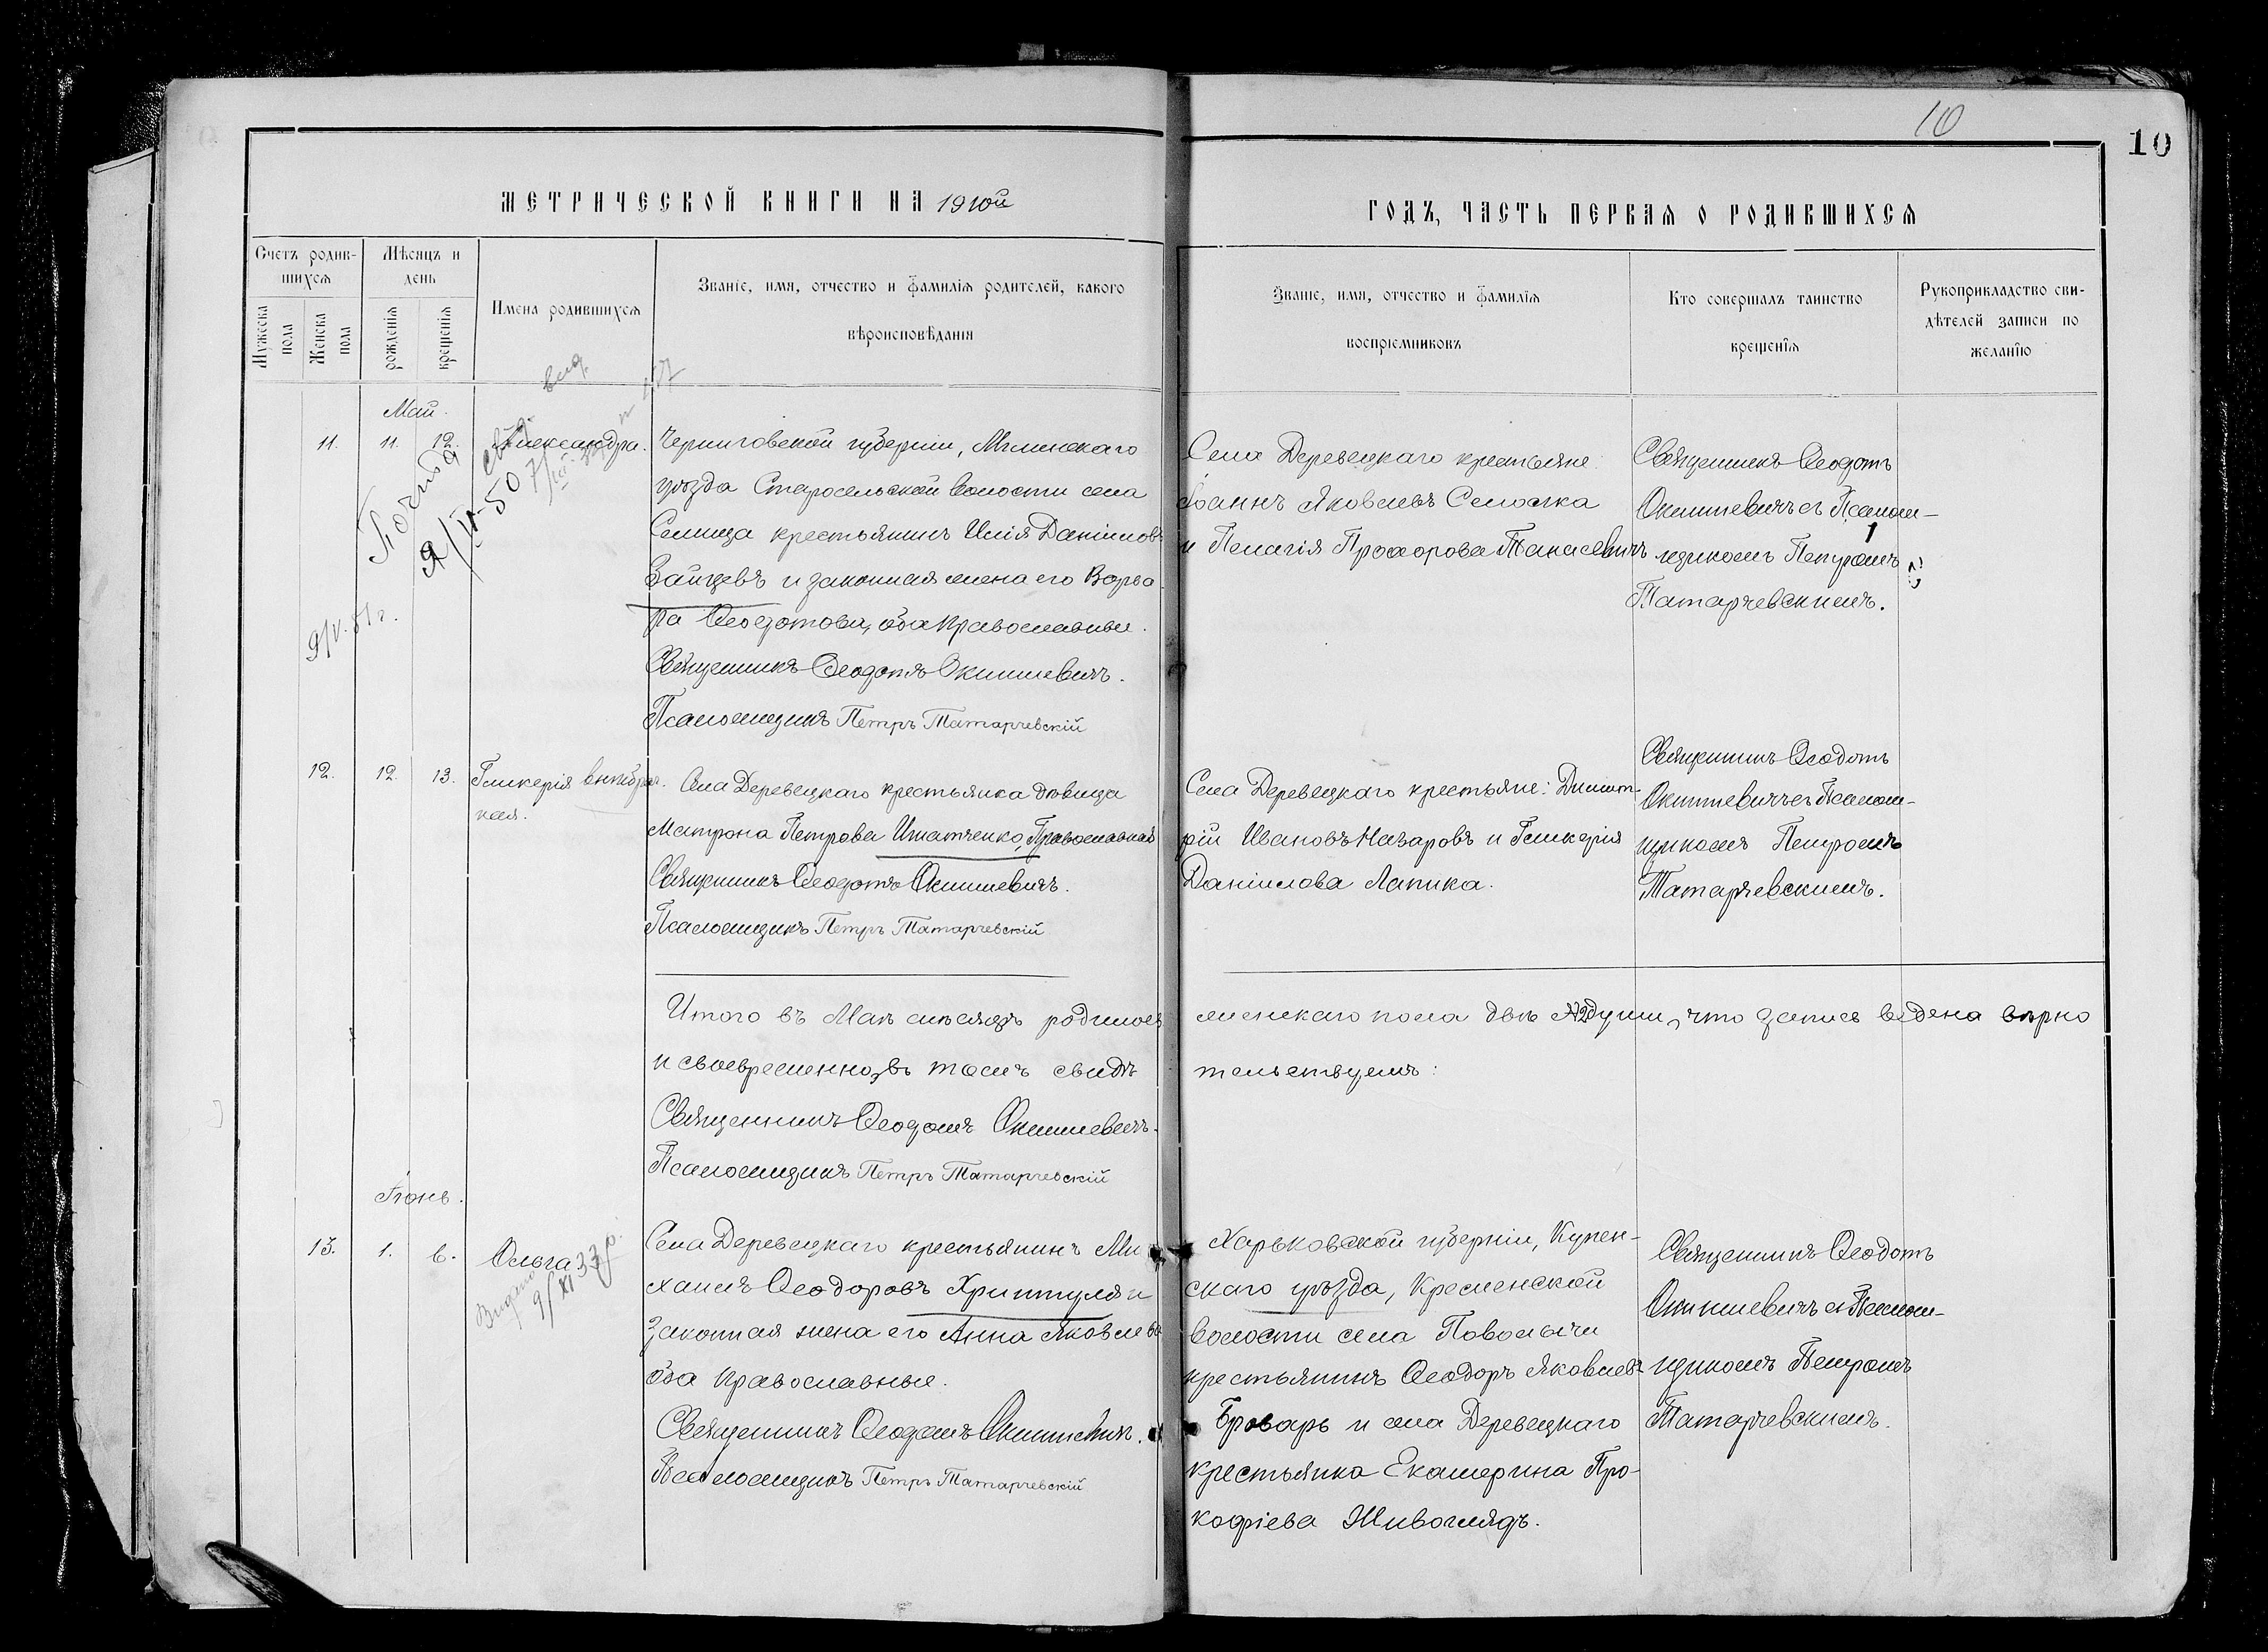 10
10
МЕТРИЧЕСКОЙ КНИГИ НА 1910й
ГОДЪ, ЧАСТЬ ПЕРВАЯ О РОДИВШИХСЯ
Счетъ родив-
шихся
Мужеска
пола
Женска
пола
Мѣсяцъ и
день
рожденія
крещенія
Имена родившихся
Званіе, имя, отчество и фамилія родителей, какого
вѣроисповѣданія
Званіе, имя, отчество и фамилія
воспріемниковъ
Кто совершалъ таинство
крещенія
Рукоприкладство сви-
дѣтелей записи по
желанію
Май.
11. 11. 12. Александра.
9/V.51г.
Черниговской губерніи, Мглинскаго
уѣзда Старосельской волости села
Селища крестьянинъ Илія Даніиловъ
Зайцевъ и законная жена его Варва
ра Ѳеодотова, оба православные.
Священникъ Ѳеодотъ Окиншевичъ.
Псаломщикъ Петръ Татарчевскій
Села Деревецкаго крестьяне
Іоаннъ Яковлевъ Селюка
и Пелагія Прохорова Танасевичъ
Священникъ Ѳеодотъ
Окиншевичъ съ Псалом-
щикомъ Петромъ
Татарчевскимъ.
12. 12. 13. Гликерія внѣбрач.
ная.
Села Деревецкаго крестьянка дѣвица
Матрона Петрова Игнатченко, Православная
Священникъ Ѳеодотъ Окиншевичъ.
Псаломщикъ Петръ Татарчевскій
Села Деревецкаго крестьяне: Димит-
рій Ивановъ Назаровъ и Гликерія
Даніилова Лапика.
Священникъ Ѳеодотъ
Окиншевичъ съ Псалом-
щикомъ Петромъ
Татарчевскимъ.
Итого въ Маѣ мѣсяцѣ родилось женскаго пола двѣ души, что запись ведена вѣрно
и своевременно, въ томъ свидѣ тельствуемъ:
Священникъ Ѳеодотъ Окиншевичъ.
Псаломщикъ Петръ Татарчевскій
Іюнь.
13. 1. 6. Ольга
9/XI 37
Села Деревецкаго крестьянинъ Ми
хаилъ Ѳеодоровъ Хриптуля и
законная жена его Анна Яковлева
оба православные.
Священникъ Ѳеодотъ Окиншевичъ.
Псаломщикъ Петръ Татарчевскій
Харьковской губерніи, Купен-
скаго уѣзда, Кременской
волости села
крестьянинъ Ѳеодоръ Яковлевъ
Броварь и села Деревецкаго
крестьянка Екатерина Про-
кофіева Живоглядъ.
Священникъ Ѳеодотъ
Окиншевичъ съ Псалом-
щикомъ Петромъ
Татарчевскимъ.